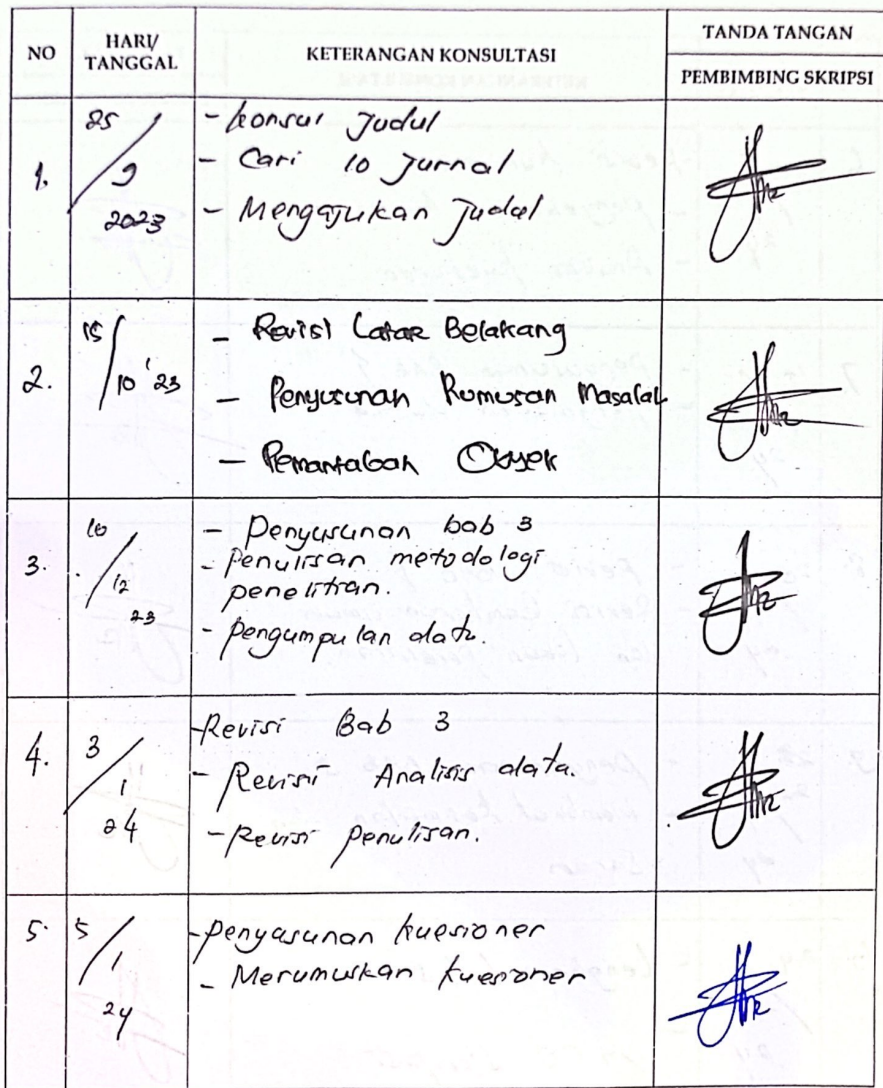 NO
HARI/
TANGGAL
KETERANGAN KONSULTASI
TANDA TANGAN
PEMBIMBING SKRIPSI
1.
25
/ 9
2023
- konsul Judul
- Cari 10 Jurnal
- Mengajukan Judul
2.
15
/ 10 '23
- Revisi Latar Belakang
- Penyusunan Rumusan Masalah
- Pemantaban Obyek
3.
/ 12
23
- Penyusunan bab 3
- Penulisan metodologi
penelitian.
- pengumpulan data.
4.
3
/ 1
24
- Revisi Bab 3
- Revisi Analisis data.
- Revisi penulisan.
5.
5
/ 1
24
- penyusunan kuesioner
- Merumuskan kuesioner